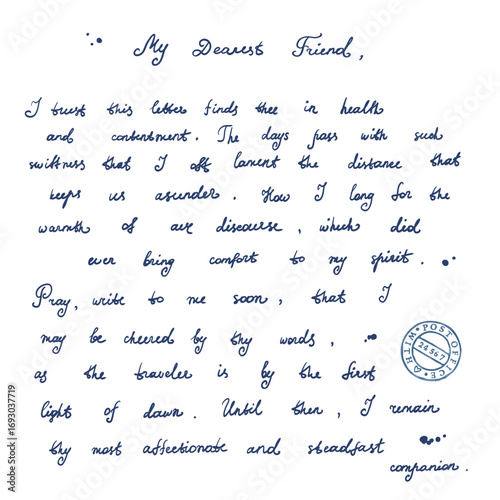 My Dearest Friend,
I trust this letter finds thee in health
and contentment. The days pass with such
swiftness that I oft lament the distance that
keeps us asunder. How I long for the
warmth of our discourse, which did
ever bring comfort to my spirit.
Pray, write to me soon, that I
may be cheered by thy words,
as the traveler is by the first
light of dawn. Until then, I remain
thy most affectionate and steadfast
companion.
POST OFFICE
24567
Adobe Stock | #1693037719